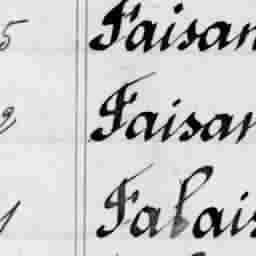 5 Faisan
2 Faisan
1 Falais